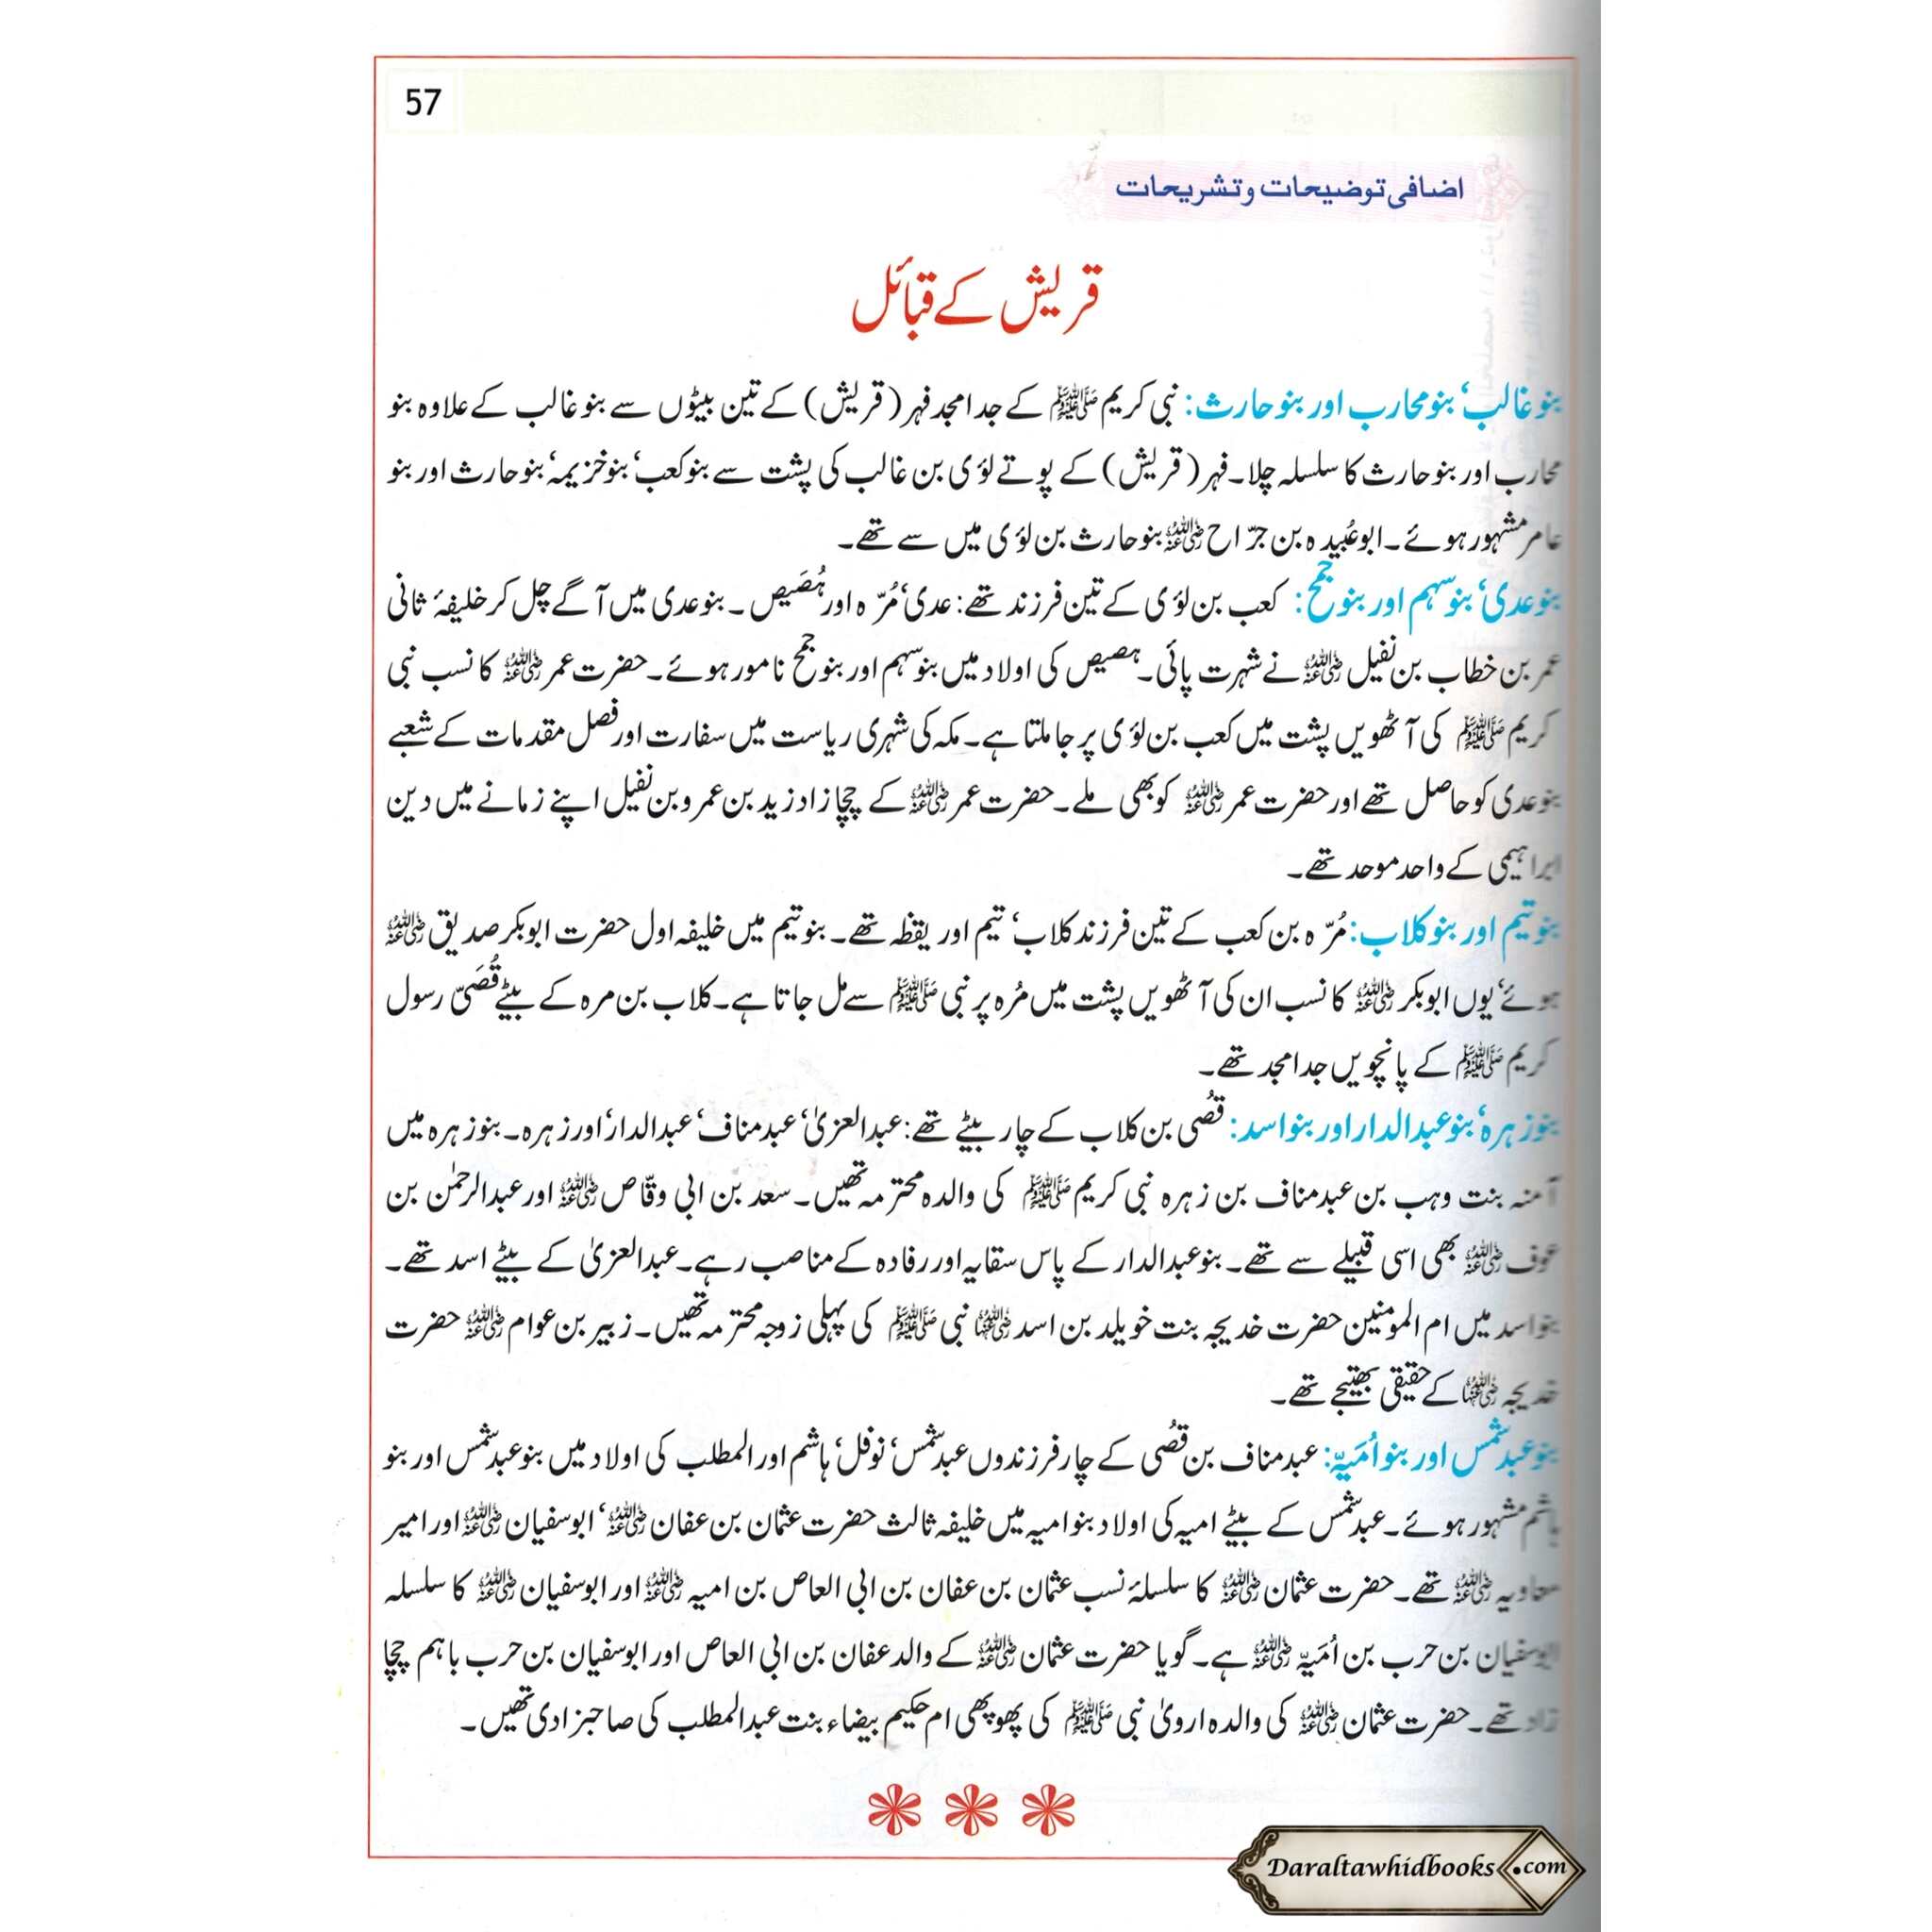 57
اضافی توضیحات و تشریحات
قریش کے قبائل
بنو غالب، بنو محارب اور بنو حارث: نبی کریم ﷺ کے جد امجد فہر (قریش) کے تین بیٹوں سے بنو غالب کے علاوہ بنو
محارب اور بنو حارث کا سلسلہ چلا۔ فہر (قریش) کے پوتے لؤی بن غالب کی پشت سے بنو کعب، بنو خزیمہ، بنو حارث اور بنو
عامر مشہور ہوئے۔ ابو عُبیدہ بن جرّاح رضی اللہ عنہ بنو حارث بن لؤی میں سے تھے۔
بنو عدی، بنو سہم اور بنو جمح: کعب بن لؤی کے تین فرزند تھے: عدی، مُرّہ اور ہُصَیص۔ بنو عدی میں آگے چل کر خلیفۂ ثانی
عمر بن خطاب بن نفیل رضی اللہ عنہ نے شہرت پائی۔ ہصیص کی اولاد میں بنو سہم اور بنو جمح نامور ہوئے۔ حضرت عمر رضی اللہ عنہ کا نسب نبی
کریم ﷺ کی آٹھویں پشت میں کعب بن لؤی پر جا ملتا ہے۔ مکہ کی شہری ریاست میں سفارت اور فصل مقدمات کے شعبے
بنو عدی کو حاصل تھے اور حضرت عمر رضی اللہ عنہ کو بھی ملے۔ حضرت عمر رضی اللہ عنہ کے چچا زاد زید بن عمرو بن نفیل اپنے زمانے میں دین
ابراہیمی کے واحد موحد تھے۔
بنو تیم اور بنو کلاب: مُرّہ بن کعب کے تین فرزند کلاب، تیم اور یقظہ تھے۔ بنو تیم میں خلیفہ اول حضرت ابوبکر صدیق رضی اللہ عنہ
ہوئے، یوں ابوبکر رضی اللہ عنہ کا نسب ان کی آٹھویں پشت میں مُرہ پر نبی ﷺ سے مل جاتا ہے۔ کلاب بن مرہ کے بیٹے قُصَیّ رسول
کریم ﷺ کے پانچویں جد امجد تھے۔
بنو زہرہ، بنو عبدالدار اور بنو اسد: قُصی بن کلاب کے چار بیٹے تھے: عبدالعزیٰ، عبد مناف، عبدالدار، اور زہرہ۔ بنو زہرہ میں
آمنہ بنت وہب بن عبد مناف بن زہرہ نبی کریم ﷺ کی والدہ محترمہ تھیں۔ سعد بن ابی وقّاص رضی اللہ عنہ اور عبدالرحمٰن بن
عوف رضی اللہ عنہ بھی اسی قبیلے سے تھے۔ بنو عبدالدار کے پاس سقایہ اور رفادہ کے مناصب رہے۔ عبدالعزیٰ کے بیٹے اسد تھے۔
بنو اسد میں ام المومنین حضرت خدیجہ بنت خویلد بن اسد رضی اللہ عنہا نبی ﷺ کی پہلی زوجہ محترمہ تھیں۔ زبیر بن عوام رضی اللہ عنہ حضرت
خدیجہ رضی اللہ عنہا کے حقیقی بھتیجے تھے۔
بنو عبد شمس اور بنو اُمَیّہ: عبد مناف بن قُصی کے چار فرزندوں عبد شمس، نوفل، ہاشم اور المطلب کی اولاد میں بنو عبد شمس اور بنو
ہاشم مشہور ہوئے۔ عبد شمس کے بیٹے امیہ کی اولاد بنو امیہ میں خلیفہ ثالث حضرت عثمان بن عفان رضی اللہ عنہ، ابوسفیان رضی اللہ عنہ اور امیر
معاویہ رضی اللہ عنہ تھے۔ حضرت عثمان رضی اللہ عنہ کا سلسلۂ نسب عثمان بن عفان بن ابی العاص بن امیہ رضی اللہ عنہ اور ابوسفیان رضی اللہ عنہ کا سلسلہ
ابوسفیان بن حرب بن اُمَیّہ رضی اللہ عنہ ہے۔ گویا حضرت عثمان رضی اللہ عنہ کے والد عفان بن ابی العاص اور ابوسفیان بن حرب باہم چچا
زاد تھے۔ حضرت عثمان رضی اللہ عنہ کی والدہ ارویٰ نبی ﷺ کی پھوپھی ام حکیم بیضاء بنت عبدالمطلب کی صاحبزادی تھیں۔
Daraltawhidbooks.com